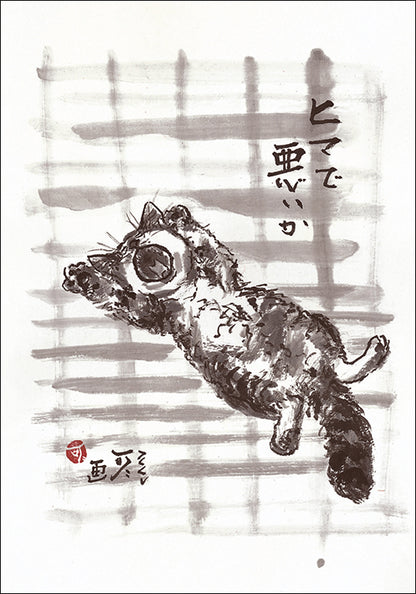 ヒマで
悪いか
画